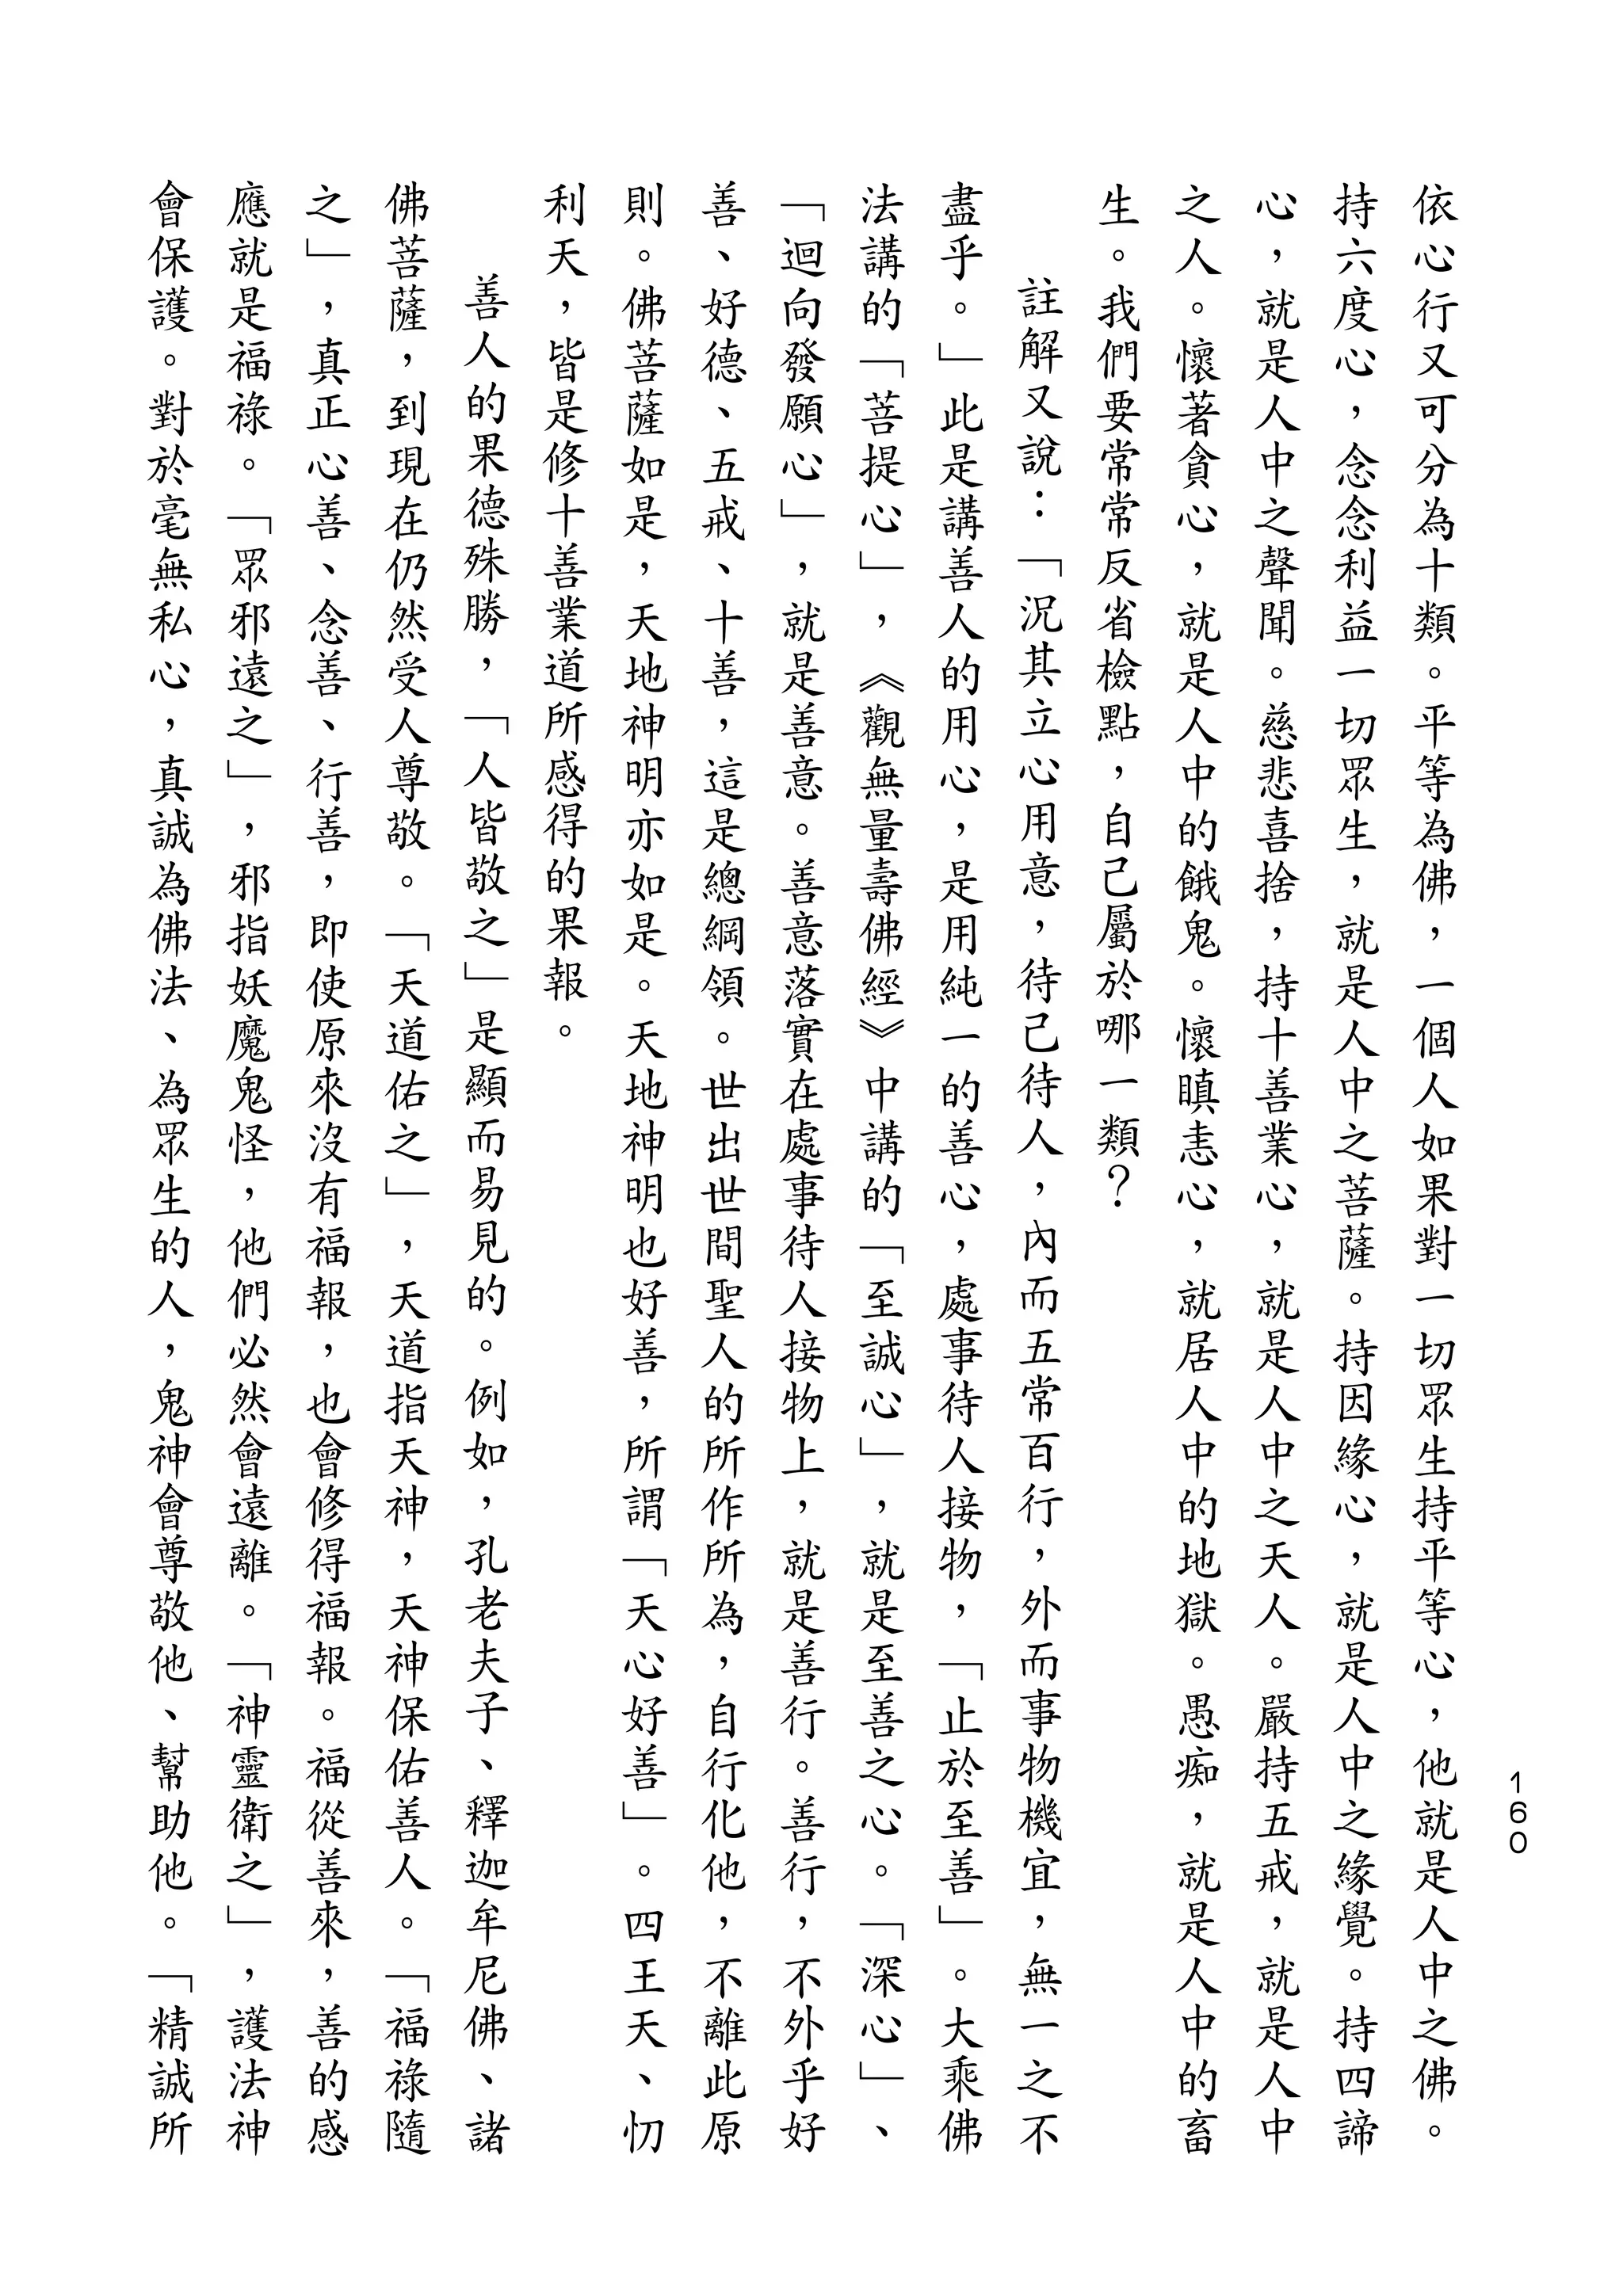 160
依心行又可分為十類。平等為佛，一個人如果對一切眾生持平等心，他就是人中之佛。
持六度心，念念利益一切眾生，就是人中之菩薩。持因緣心，就是人中之緣覺。持四諦
心，就是人中之聲聞。慈悲喜捨，持十善業心，就是人中之天人。嚴持五戒，就是人中
之人。懷著貪心，就是人中的餓鬼。懷瞋恚心，就居人中的地獄。愚痴，就是人中的畜
生。我們要常常反省檢點，自己屬於哪一類？
註解又說：「況其立心用意，待己待人，內而五常百行，外而事物機宜，無一之不
盡乎。」此是講善人的用心，是用純一的善心，處事待人接物，「止於至善」。大乘佛
法講的「菩提心」，《觀無量壽佛經》中講的「至誠心」，就是至善之心。「深心」、
「迴向發願心」，就是善意。善意落實在處事待人接物上，就是善行。善行，不外乎好
善、好德、五戒、十善，這是總綱領。世出世間聖人的所作所為，自行化他，不離此原
則。佛菩薩如是，天地神明亦如是。天地神明也好善，所謂「天心好善」。四王天、忉
利天，皆是修十善業道所感得的果報。
善人的果德殊勝，「人皆敬之」是顯而易見的。例如，孔老夫子、釋迦牟尼佛、諸
佛菩薩，到現在仍然受人尊敬。「天道佑之」，天道指天神，天神保佑善人。「福祿隨
之」，真正心善、念善、行善，即使原來沒有福報，也會修得福報。福從善來，善的感
應就是福祿。「眾邪遠之」，邪指妖魔鬼怪，他們必然會遠離。「神靈衛之」，護法神
會保護。對於毫無私心，真誠為佛法、為眾生的人，鬼神會尊敬他、幫助他。「精誠所